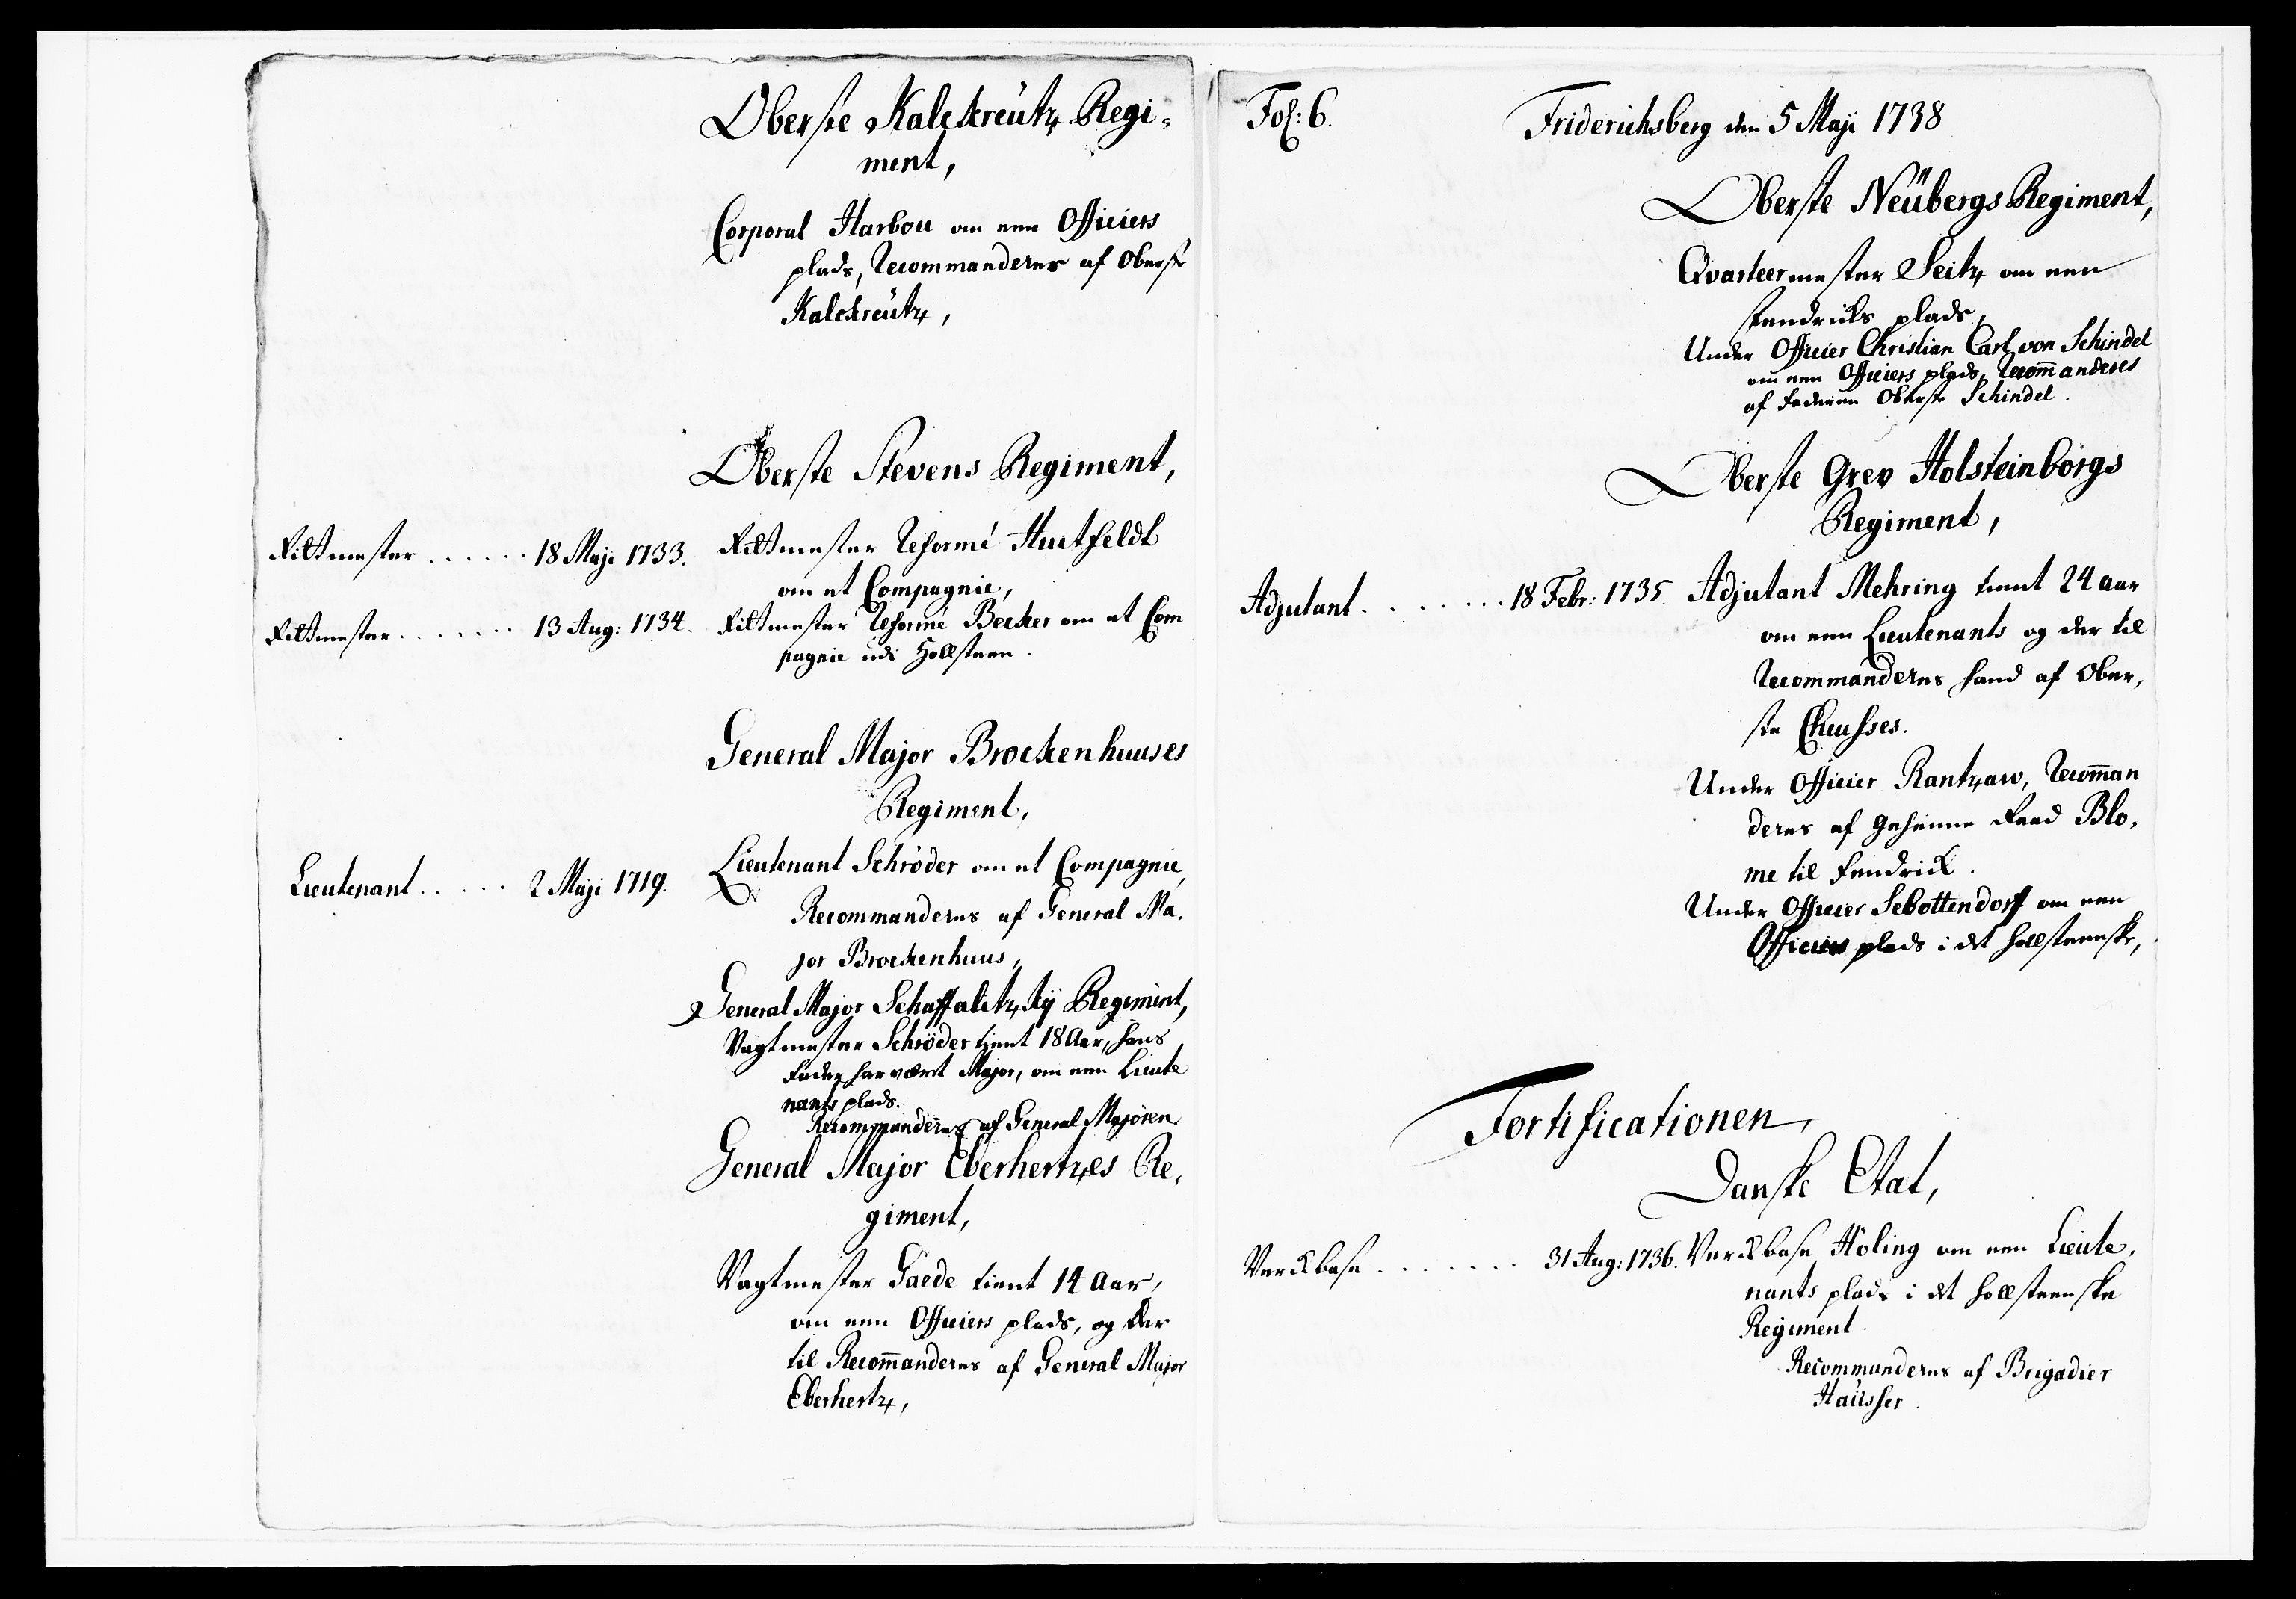 Oberste Kalckreütz Regi-
ment,
Corporal Harbou om een Officiers
plads, Recommanderes af Oberste
Kalckreütz,
Oberste Stevens Regiment,
Rittmester ...... 18 Maji 1733. Rittmester Reformé Huitfeldt
om et Compagnie,
Rittmester ....... 13 Aug: 1734. Rittmester Reformé Becker om et Com
pagnie udi Hollsteen.
General Major Brockenhuuses
Regiment,
Lieutenant ..... 2 Maji 1719. Lieutenant Schrøder om et Compagnie,
Recommanderes af General Ma-
jor Brockenhuus,
General Major Schaffalitzkÿ Regiment,
Vagtmester Schröder tient 18 Aar, hans
Fader har vært Major, om een Lieute
nants plads.
Recommanderes af General Majoren
General Major Eberhertzes Re-
giment,
Vagtmester Gaede tient 14 Aar,
om een Officiers plads, og der
til Recom̄anderes af General Major
Eberhertz,
Fol: 6. Friderichsberg den 5 Maji 1738
Oberste Neübergs Regiment,
Qvarteermester Seitz om een
Fendricks plads,
Under Officier Christian Carl von Schindel
om een Officiers plads, Recom̄anderes
af Faderen Oberste Schindel.
Oberste Grev Holsteinborgs
Regiment,
Adjutant ........ 18 Febr: 1735. Adjutant Mehring tient 24 aar
om een Lieutenants og der til
Recommanderes hand af Ober-
ste Cheusses.
Under Officier Rantzaw, Recom̄an
deres af Geheime Raad Blo-
me til Fendrick.
Under Officier Sebottendorff om een
Officiers plads i det hollsteenske,
Fortificationen,
Danske Etat,
Verckbase ....... 31 Aug: 1736. Verckbase Höling om een Lieute-
nants plads i det hollsteenske
Regiment.
Recommanderes af Brigadier
Haüsser.